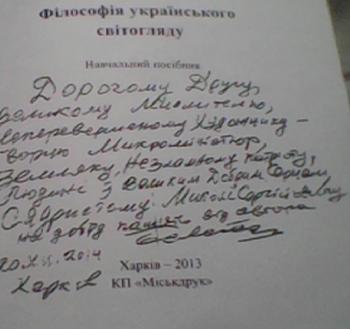 Філософія українського
світогляду
Навчальний посібник
Дорогому Другу,
великому Мислителю,
неперевершеному Художнику –
творцю Мікромініатюр,
Земляку, Незламному патріоту,
Людині з великим Добрим Серцем
Сядристому Миколі Сергійовичу
на добру пам'ять від автора
20.XII.2014
Харків
Харків – 2013
КП «Міськдрук»